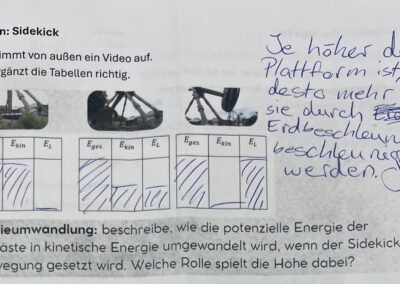 n: Sidekick
immt von außen ein Video auf.
ergänzt die Tabellen richtig.
Ekin EL
Eges. Ekin EL
Eges. Ekin EL
Je höher d
Plattform ist,
desto mehr
sie durch
Erdbeschleun
beschleunig
werden.
ieumwandlung: beschreibe, wie die potenzielle Energie der
äste in kinetische Energie umgewandelt wird, wenn der Sidekick
wegung gesetzt wird. Welche Rolle spielt die Höhe dabei?